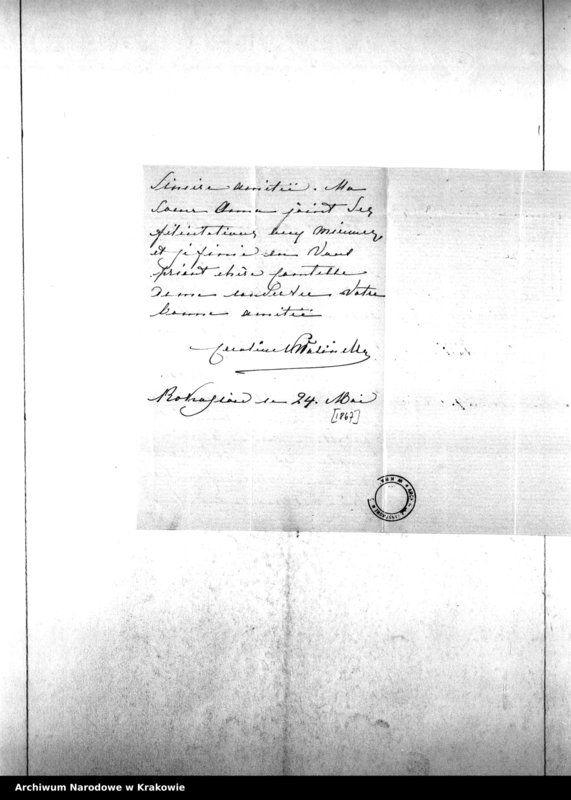 Sinsire amitié. Ma
Soeur Anna joint Ses
félicitations aux miennes
et je finie en Vous
priant chère
de me conserver Votre
bonne amitié
Caroline
le 24. Mai
[1867]
Archiwum Narodowe w Krakowie